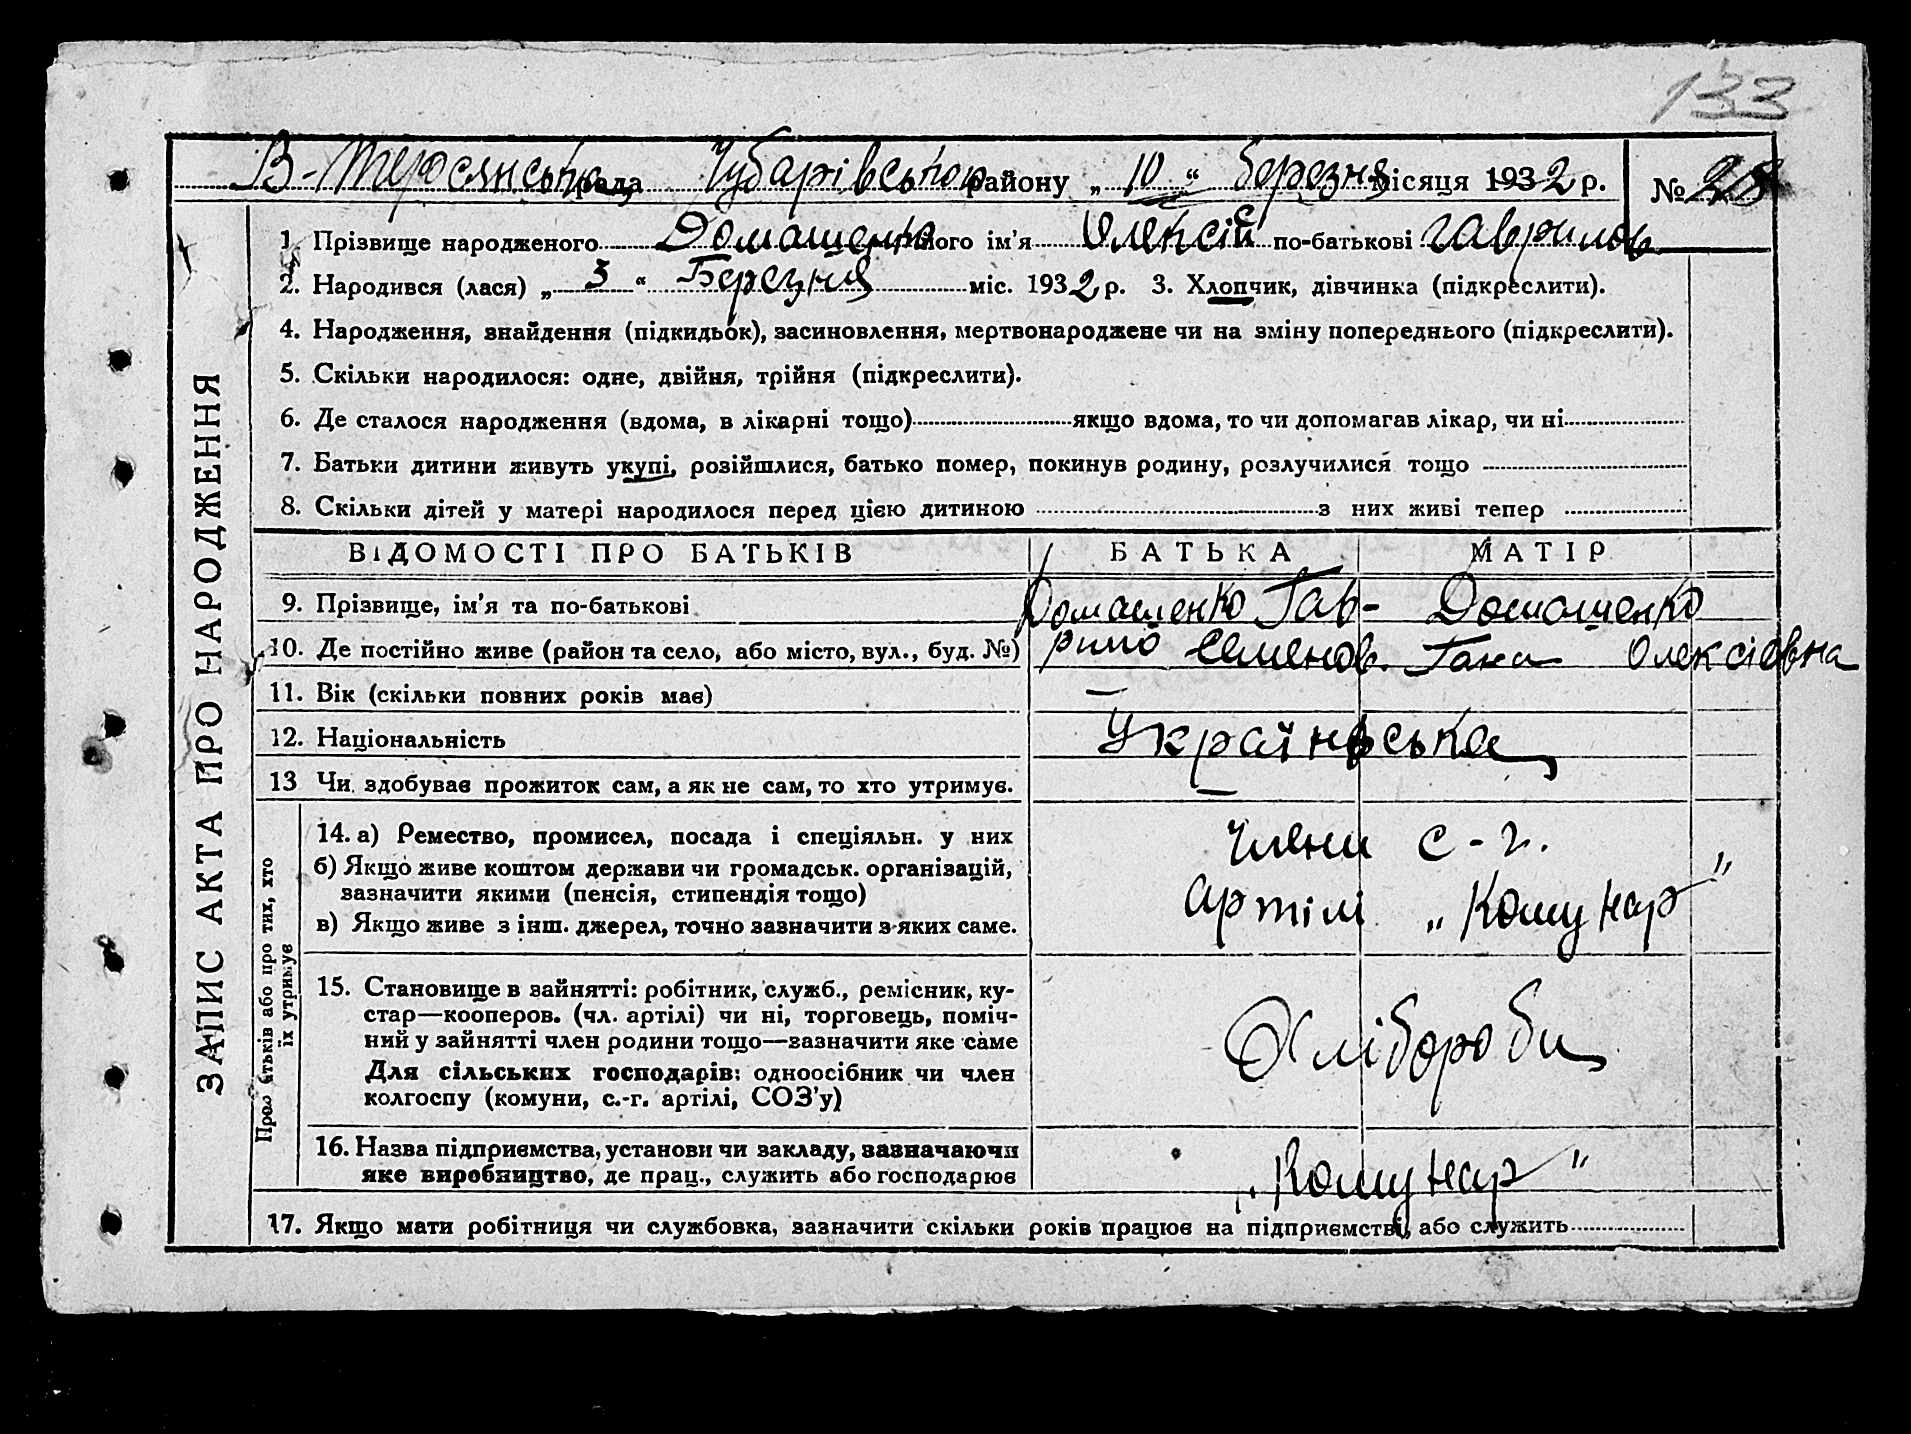 133
В-Терсянська рада Чубарівського району „ 10 “ березня місяця 1932 р. № 28
1. Прізвище народженого Домашенко його ім’я Олексій по-батькові Гаврилов
2. Народився (лася) „ 3 “ Березня міс. 1932 р. 3. Хлопчик, дівчинка (підкреслити).
4. Народження, знайдення (підкидьок), засиновлення, мертвонароджене чи на зміну попереднього (підкреслити).
5. Скільки народилося: одне, двійня, трійня (підкреслити).
6. Де сталося народження (вдома, в лікарні тощо) якщо вдома, то чи допомагав лікар, чи ні
7. Батьки дитини живуть укупі, розійшлися, батько помер, покинув родину, розлучилися тощо
8. Скільки дітей у матері народилося перед цією дитиною з них живі тепер
ЗАПИС АКТА ПРО НАРОДЖЕННЯ
ВІДОМОСТІ ПРО БАТЬКІВ БАТЬКА МАТІР
9. Прізвище, ім’я та по-батькові Домашенко Гав- Домашенко
10. Де постійно живе (район та село, або місто, вул., буд. №) рило Семенов. Гана Олексієвна
11. Вік (скільки повних років має) –
12. Національність Українська
13 Чи здобуває прожиток сам, а як не сам, то хто утримує. –
Про батьків або про тих, хто
їх утримує
14. а) Ремество, промисел, посада і спеціяльн. у них Члени с-г.
б) Якщо живе коштом держави чи громадськ. організацій,
зазначити якими (пенсія, стипендія тощо) артілі „Комунар”
в) Якщо живе з інш. джерел, точно зазначити з яких саме.
15. Становище в зайнятті: робітник, служб., ремісник, ку-
стар—кооперов. (чл. артілі) чи ні, торговець, поміч- Хлібороби
ний у зайнятті член родини тощо—зазначити яке саме
Для сільських господарів: одноосібник чи член
колгоспу (комуни, с.-г. артілі, СОЗ’у)
16. Назва підприємства, установи чи закладу, зазначаючи
яке виробництво, де прац., служить або господарює „Комунар”
17. Якщо мати робітниця чи службовка, зазначити скільки років працює на підприємстві, або служить